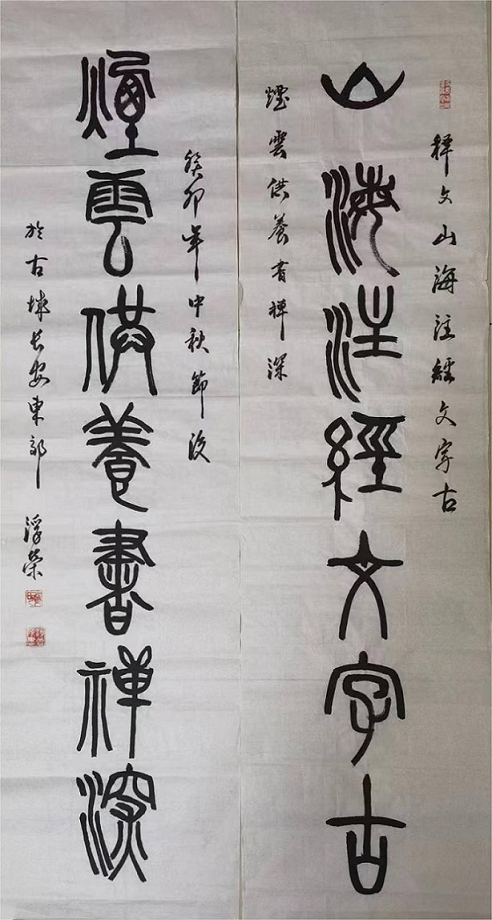 释文山海注經文字古
山海注經文字古
煙雲供養書禅深
癸卯年中秋節後
煙雲供養書禪深
於古城长安東郊 浮榮